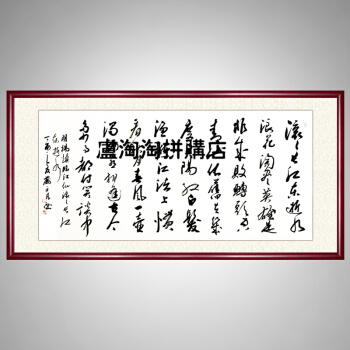 滚滚长江东逝水
浪花淘尽英雄是
非成败转头空
青山依旧在几
度夕阳红白发
渔樵江渚上惯
看秋月春风一壶
浊酒喜相逢古今
多少事都付笑谈中
明杨慎临江仙滚滚长江
东逝水
盧淘淘拼購店